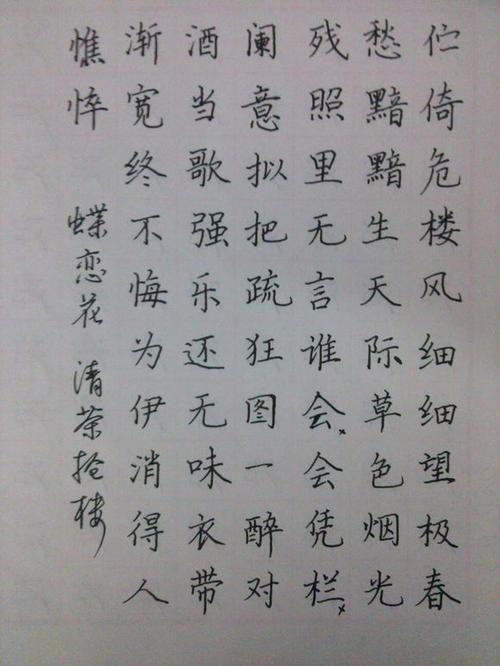 伫倚危楼风细细望极春
愁黯黯生天际草色烟光
残照里无言谁会会凭栏
阑意拟把疏狂图一醉对
酒当歌强乐还无味衣带
渐宽终不悔为伊消得人
憔悴 蝶恋花 清茶抢楼